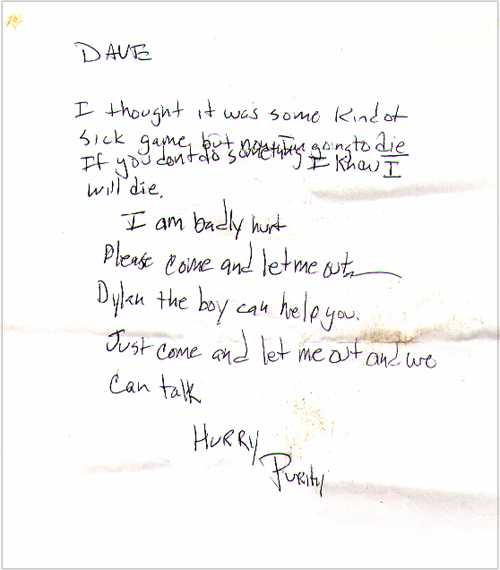 DAVE
I thought it was some kind of
sick game, but now I'm going to die
If you dont do something I know I
will die.
I am badly hurt
Please come and let me out
Dylan the boy can help you.
Just come and let me out and we
can talk
HURRY
Purity